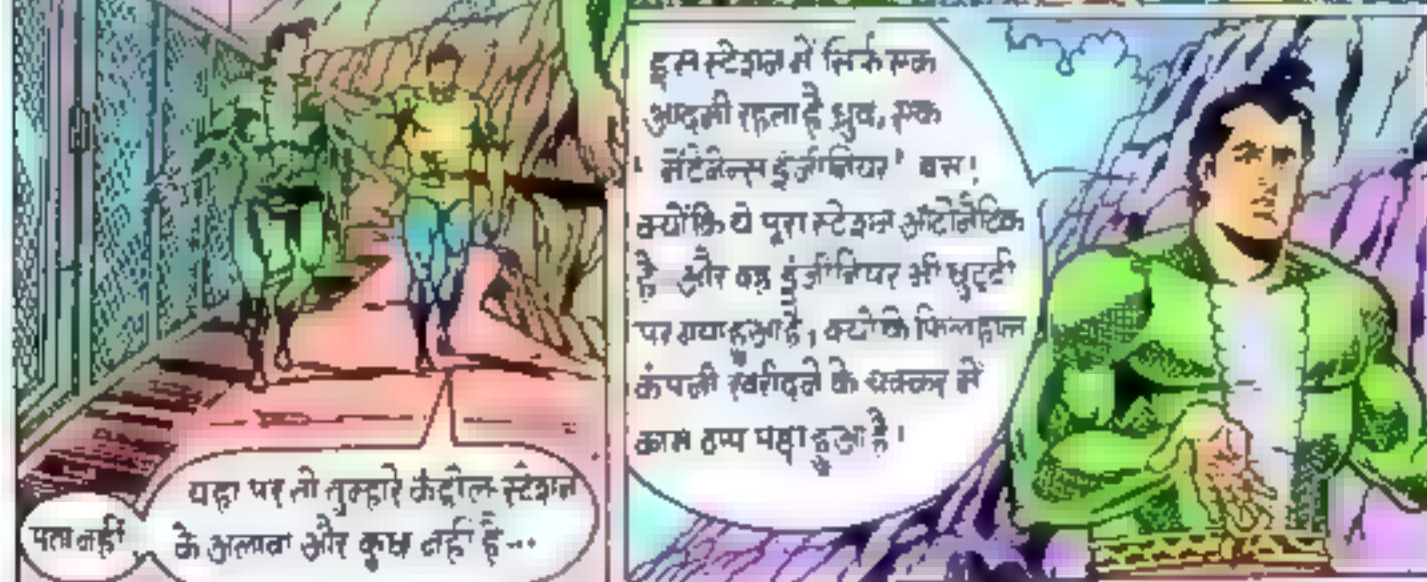 यहां पर तो तुम्हारे कंट्रोल-स्टेशन
के अलावा और कुछ नहीं है---
पता नहीं
इस स्टेशन में सिर्फ एक
आदमी रहता है ध्रुव, एक
'मेंटेनेन्स इंजीनियर' बस!
क्योंकि ये पूरा स्टेशन ऑटोमैटिक
है और वह इंजीनियर भी छुट्टी
पर गया हुआ है, क्योंकि फिलहाल
कंपनी खरीदने के चक्कर में
काम ठप्प पड़ा हुआ है।